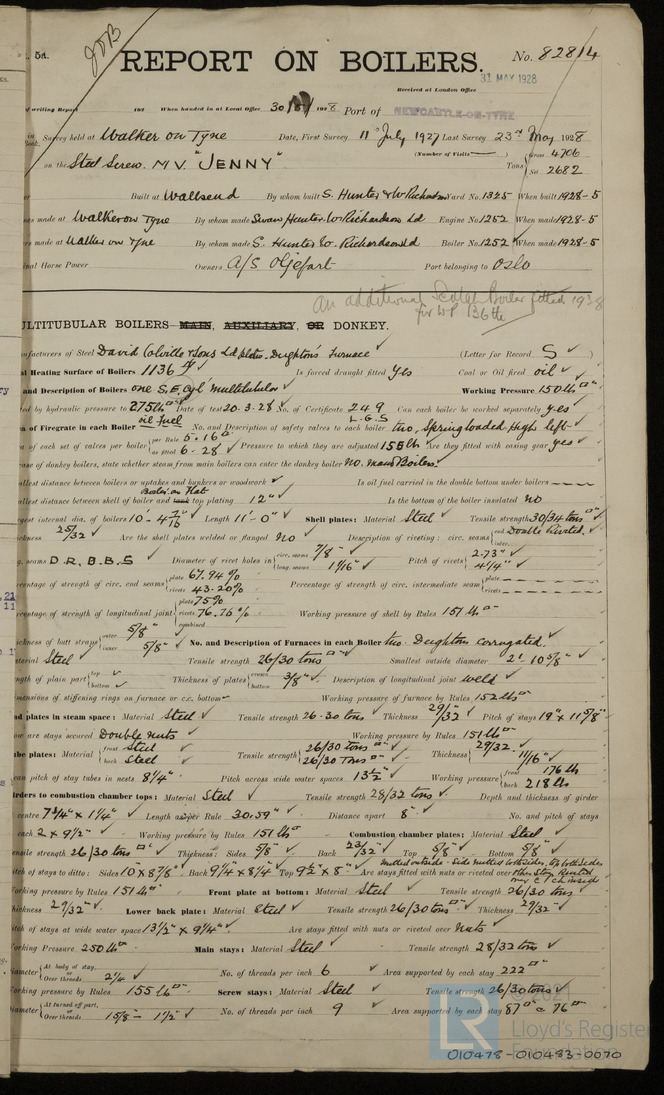 5a.
JDB
REPORT ON BOILERS.
No. 82814
Received at London Office
31 MAY 1928
of writing Report 192 When handed in at Local Office 30/5/1928 Port of NEWCASTLE-ON-TYNE
in Survey held at Walker on Tyne Date, First Survey 11th July 1927 Last Survey 23rd May 1928
(Number of Visits )
on the Steel Screw. M.V. "JENNY" Tons Gross 4706 Net 2682
Built at Wallsend By whom built S. Hunter & W Richardson Yard No. 1325 When built 1928-5
es made at Walker on Tyne By whom made Swan Hunter. W Richardson Ld Engine No. 1252 When made 1928-5
rs made at Walker on Tyne By whom made S. Hunter W. Richardson Ld Boiler No. 1252 When made 1928-5
inal Horse Power Owners A/S Oljefart Port belonging to Oslo
an additional Scotch Boiler fitted 1938
for WP 136 lbs
ULTITUBULAR BOILERS MAIN, AUXILIARY, OR DONKEY.
nufacturers of Steel David Colville & Sons Ld plates. Deighton's Furnace (Letter for Record S )
al Heating Surface of Boilers 1136 Is forced draught fitted yes Coal or Oil fired oil
and Description of Boilers one S.E. cyl multitubular Working Pressure 150 lb
ted by hydraulic pressure to 275 lb Date of test 20.3.28 No. of Certificate 249 Can each boiler be worked separately yes
L.G.S
a of Firegrate in each Boiler oil fuel No. and Description of safety valves to each boiler two, Spring loaded High left
a of each set of valves per boiler per Rule 5.16 as fitted 6.28 Pressure to which they are adjusted 155 lb Are they fitted with easing gear yes
case of donkey boilers, state whether steam from main boilers can enter the donkey boiler No. Main Boilers.
allest distance between boilers or uptakes and bunkers or woodwork Is oil fuel carried in the double bottom under boilers
Boiler on Flat
allest distance between shell of boiler and tank top plating 12" Is the bottom of the boiler insulated no
gest internal dia. of boilers 10'-4 7/16 Length 11'-0" Shell plates: Material Steel Tensile strength 30/34 tons
ckness 25/32 Are the shell plates welded or flanged No Description of riveting: circ. seams end Double Riveted inter.
g. seams D.R.B.B.S Diameter of rivet holes in circ. seams 7/8" long. seams 1 1/16" Pitch of rivets 2.73" 4 1/4"
rcentage of strength of circ. end seams plate 67.94% rivets 43.20% Percentage of strength of circ. intermediate seam plate rivets
rcentage of strength of longitudinal joint plate 75% rivets 76.76% combined Working pressure of shell by Rules 151 lb
ickness of butt straps outer 5/8" inner 5/8" No. and Description of Furnaces in each Boiler two. Deighton corrugated.
aterial Steel Tensile strength 26/30 tons Smallest outside diameter 2'. 10 5/8"
gth of plain part top bottom Thickness of plates crown bottom 3/8" Description of longitudinal joint weld
mensions of stiffening rings on furnace or c.c. bottom Working pressure of furnace by Rules 152 lb
nd plates in steam space: Material Steel Tensile strength 26.30 tons Thickness 29/32 Pitch of stays 19" x 11 5/8"
ow are stays secured Double nuts Working pressure by Rules 151 lb
ube plates: Material front Steel back Steel Tensile strength 26/30 tons 26/30 Tons Thickness 29/32" 11/16"
ean pitch of stay tubes in nests 8 1/4" Pitch across wide water spaces 13 1/2" Working pressure front 176 lb back 218 lb
irders to combustion chamber tops: Material Steel Tensile strength 28/32 tons Depth and thickness of girder
centre 7 3/4" x 1 1/4" Length as per Rule 30.59" Distance apart 8" No. and pitch of stays
each 2 x 9 1/2" Working pressure by Rules 151 lb Combustion chamber plates: Material Steel
ensile strength 26/30 tons Thickness: Sides 5/8" Back 23/32" Top 5/8" Bottom 5/8"
itch of stays to ditto: Sides 10 x 8 7/8" Back 9 1/4 x 8 1/4 Top 9 1/2 x 8" Are stays fitted with nuts or riveted over
orking pressure by Rules 151 lb Front plate at bottom: Material Steel Tensile strength 26/30 tons
hickness 29/32" Lower back plate: Material Steel Tensile strength 26/30 tons Thickness 29/32"
itch of stays at wide water space 13 1/2" x 9 1/4" Are stays fitted with nuts or riveted over nuts
orking Pressure 250 lb Main stays: Material Steel Tensile strength 28/32 tons
iameter At body of stay, or Over threads 2 1/4 No. of threads per inch 6 Area supported by each stay 222
orking pressure by Rules 155 lb Screw stays: Material Steel Tensile strength 26/30 tons
iameter At turned off part, or Over threads 1 5/8 - 1 1/2" No. of threads per inch 9 Area supported by each stay 87 & 76
LR © 2021
Lloyd's Register
Foundation
010478-010483-0070